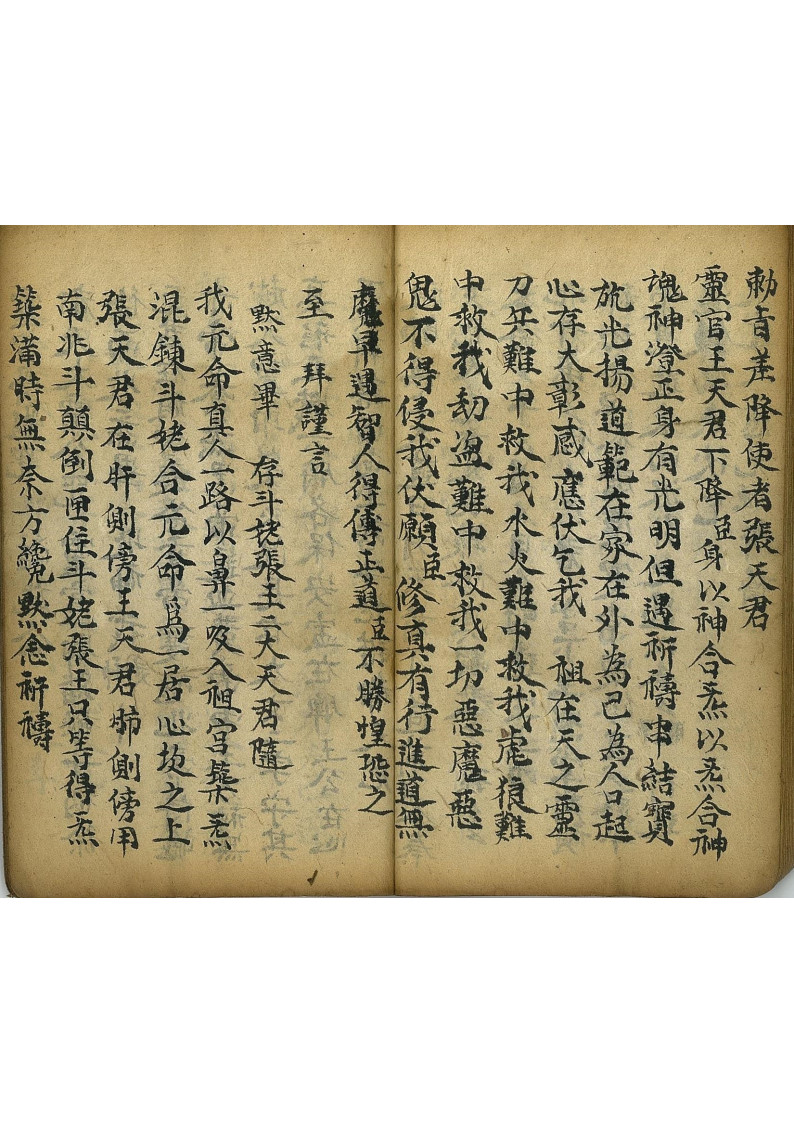 勅旨差降使者張天君
靈官王天君下降臣身以神合炁以炁合神
魂神澄正身有光明但遇祈禱串結寶
旋光揚道範在家在外為己為人口起
心存大彰感應伏乞我 祖在天之靈
刀兵難中救我水火難中救我虎狼難
中救我刼盜難中救我一切惡魔惡
鬼不得侵我伏願臣修真有行進道無
魔早遇智人得傳正道臣不勝惶恐之
至 拜謹言
默意畢 存斗姥張王二大天君隨
我元命真人一路以鼻一吸入祖宮築炁
混鍊斗姥合元命爲一居心坎之上
張天君在肝側傍王天君肺側傍用
南兆斗顛倒匣住斗姥張王只等得炁
築滿時無奈方纔默念祈禱